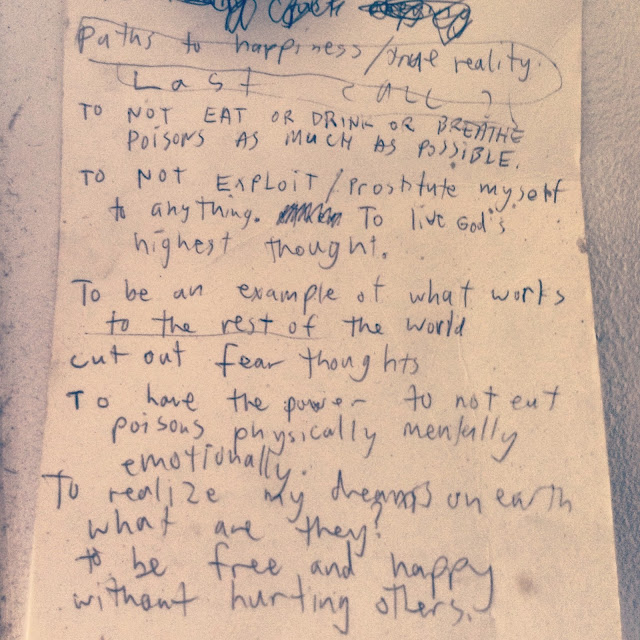 Paths to happiness/true reality.
Last Call
TO NOT EAT OR DRINK OR BREATHE
POISONS AS MUCH AS POSSIBLE.
TO NOT EXPLOIT/prostitute myself
to anything. To live God's
highest thought.
To be an example of what works
to the rest of the world
cut out fear thoughts
To have the power to not eat
poisons physically mentally
emotionally.
To realize my dreams on earth
what are they?
to be free and happy
without hurting others.